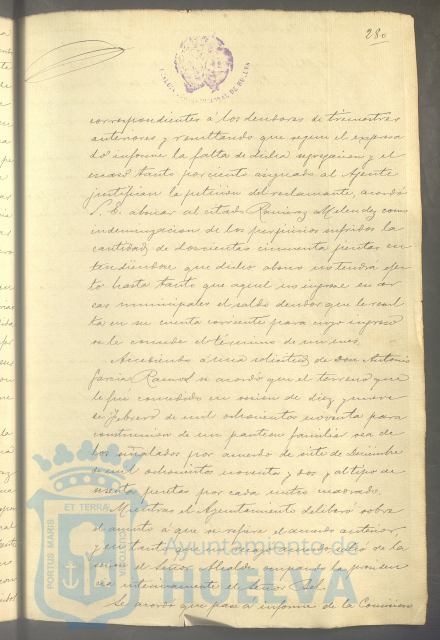 280
correspondientes á los deudores de trimestres
anteriores y resultando que segun el expresa
do informe la falta de dicha segregacion y el
escaso tanto por ciento asignado al Agente
justifican la peticion del reclamante, acordó
S. E. abonar al citado Ramirez Melendez como
indemnizacion de los perjuicios sufridos la
cantidad de doscientas cincuenta pesetas en
tendiéndose que dicho abono no tendrá efec
to hasta tanto que aquel no ingrese en ar
cas municipales el saldo deudor que le resul
ta en su cuenta corriente para cuyo ingreso
se le concede el término de un mes.
Accediendo á una solicitud de Don Antonio
Garcia Ramos se acordó que el terreno que
le fué concedido en sesion de diez y nueve
de Febrero de mil ochocientos noventa para
construccion de un panteon familiar sea de
los señalados por acuerdo de siete de Diciembre
de mil ochocientos noventa y dos y al tipo de
pesetas por cada metro cuadrado.
Mientras el Ayuntamiento deliberó sobre
el asunto á que se refiere el acuerdo anterior,
y en tanto que
el Señor Alcalde ocupando la presiden
cia interinamente el Señor
Se acordó que pase á informe de la Comision
PORTUS MARIS
ET TERRAE
Ayuntamiento de
HUELVA